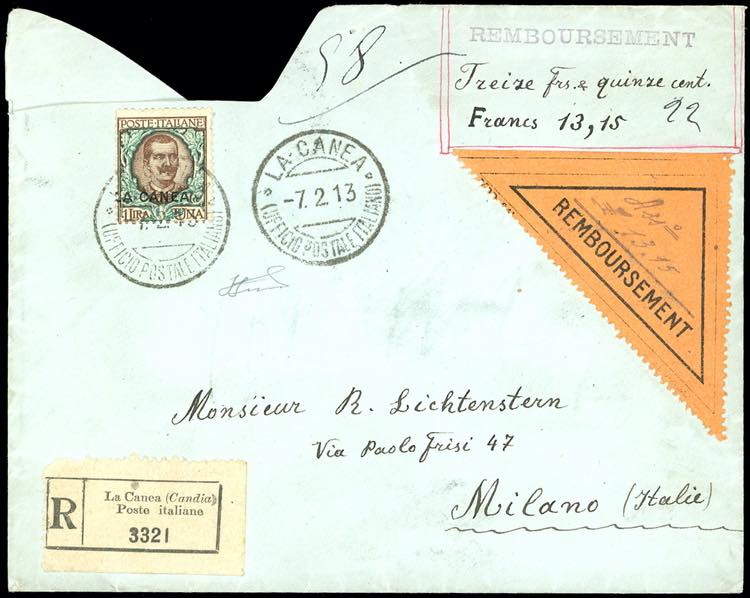 58
REMBOURSEMENT
Treize frs. & quinze cent.
Francs 13,15
22
POSTE·ITALIANE
LA CANEA
1 LIRA UNA
LA·CANEA
(UFFICIO POSTALE ITALIANO)
LA·CANEA
-7.2.13
(UFFICIO POSTALE ITALIANO)
13,15
REMBOURSEMENT
Monsieur R. Lichtenstern
Via Paolo Frisi 47
Milano (Italie)
R
La Canea (Candia)
Poste italiane
3321